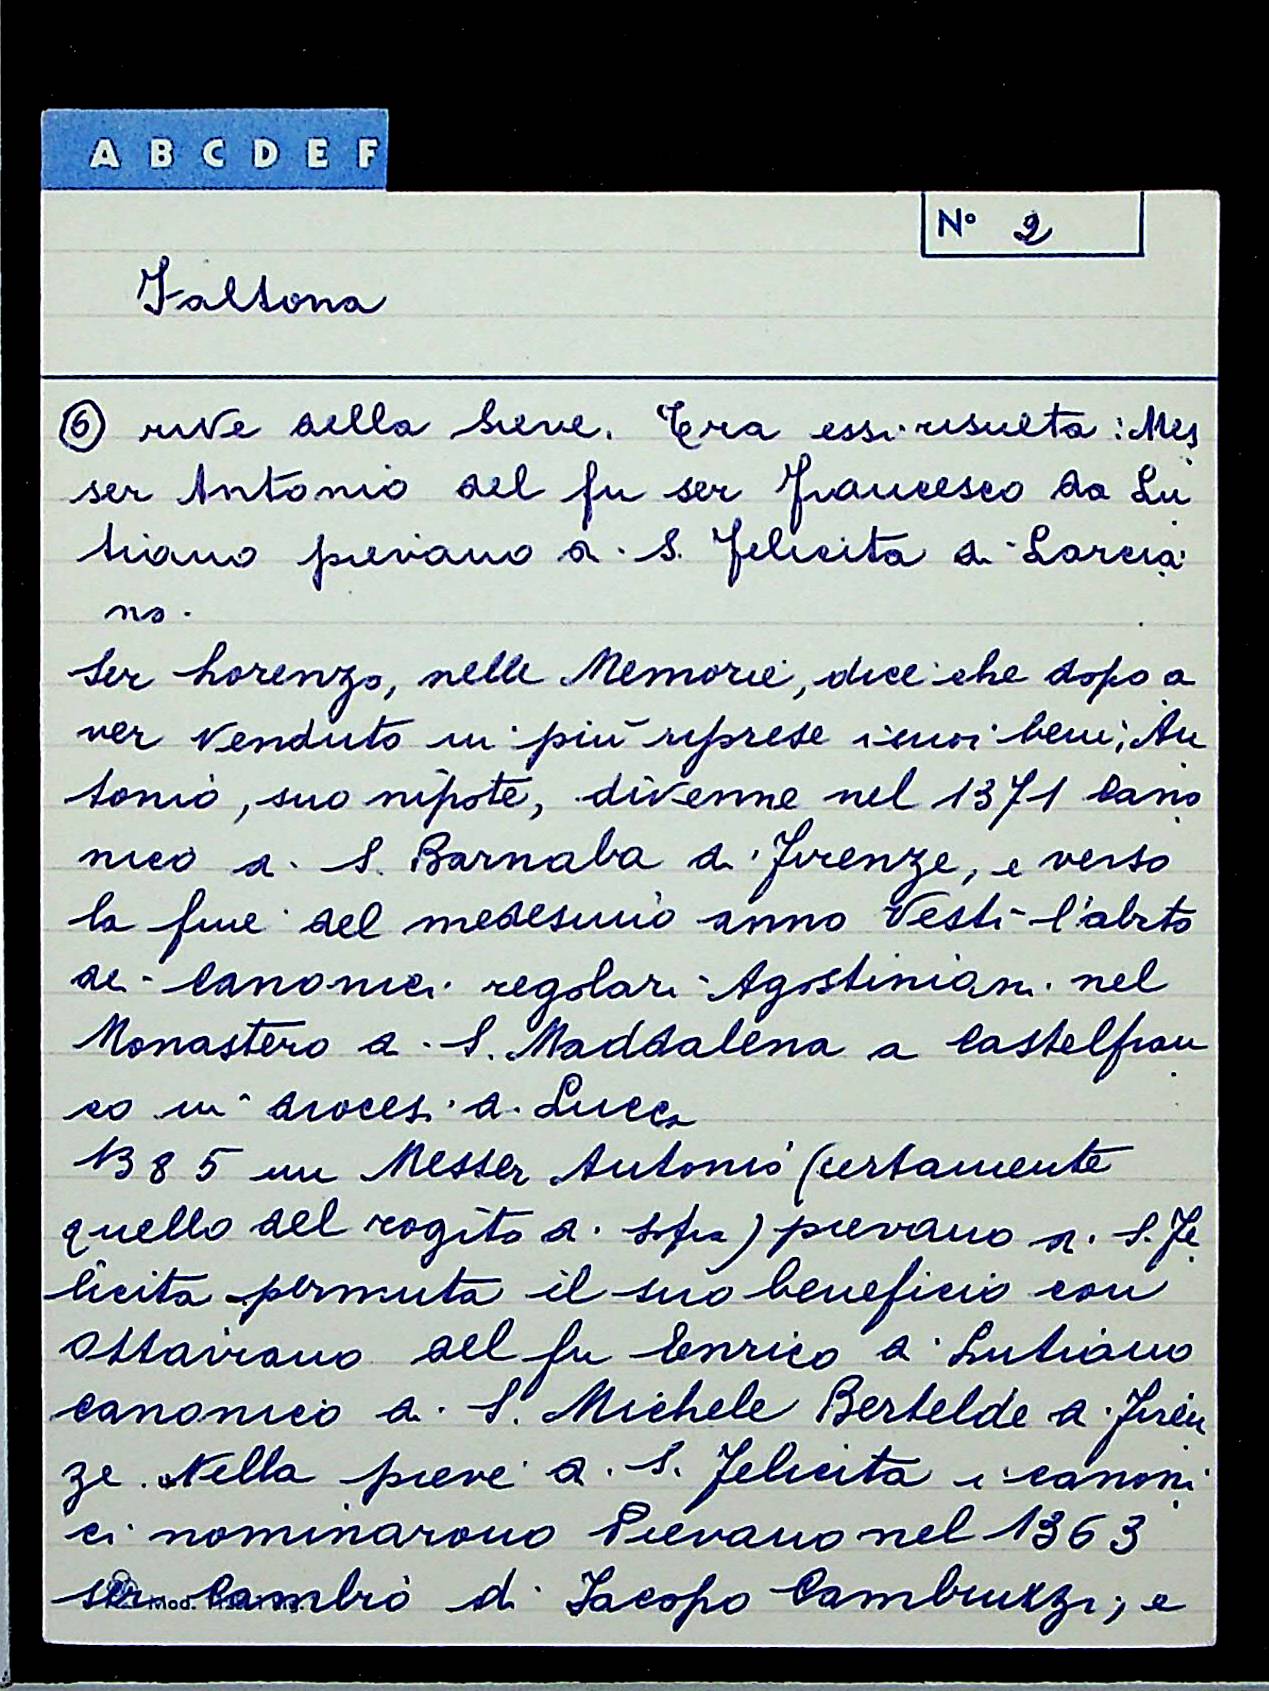 A B C D E F
N° 2
Faltona
6 rive della Sieve. Era essi risulta: Mes
ser Antonio del fu ser Francesco da Lu
tiano pievano di S. Felicita di Larcia
no.
Ser Lorenzo, nelle Memorie, dice che dopo a
ver venduto in più riprese i suoi beni, An
tonio, suo nipote, divenne nel 1371 Cano
nico di S. Barnaba di Firenze, e verso
la fine del medesimo anno vestì l'abito
dei Canonici regolari Agostiniani nel
Monastero di S. Maddalena a Castelfran
co in diocesi di Lucca
1385 un Messer Antonio (certamente
quello del rogito di sopra) pievano di S. Fe
licita permuta il suo beneficio con
Ottaviano del fu Enrico di Lutiano
canonico di S. Michele Bertelde di Firen
ze. Nella pieve di S. Felicita i canoni
ci nominarono Pievano nel 1363
ser Cambio di Jacopo Cambiuzzi, e